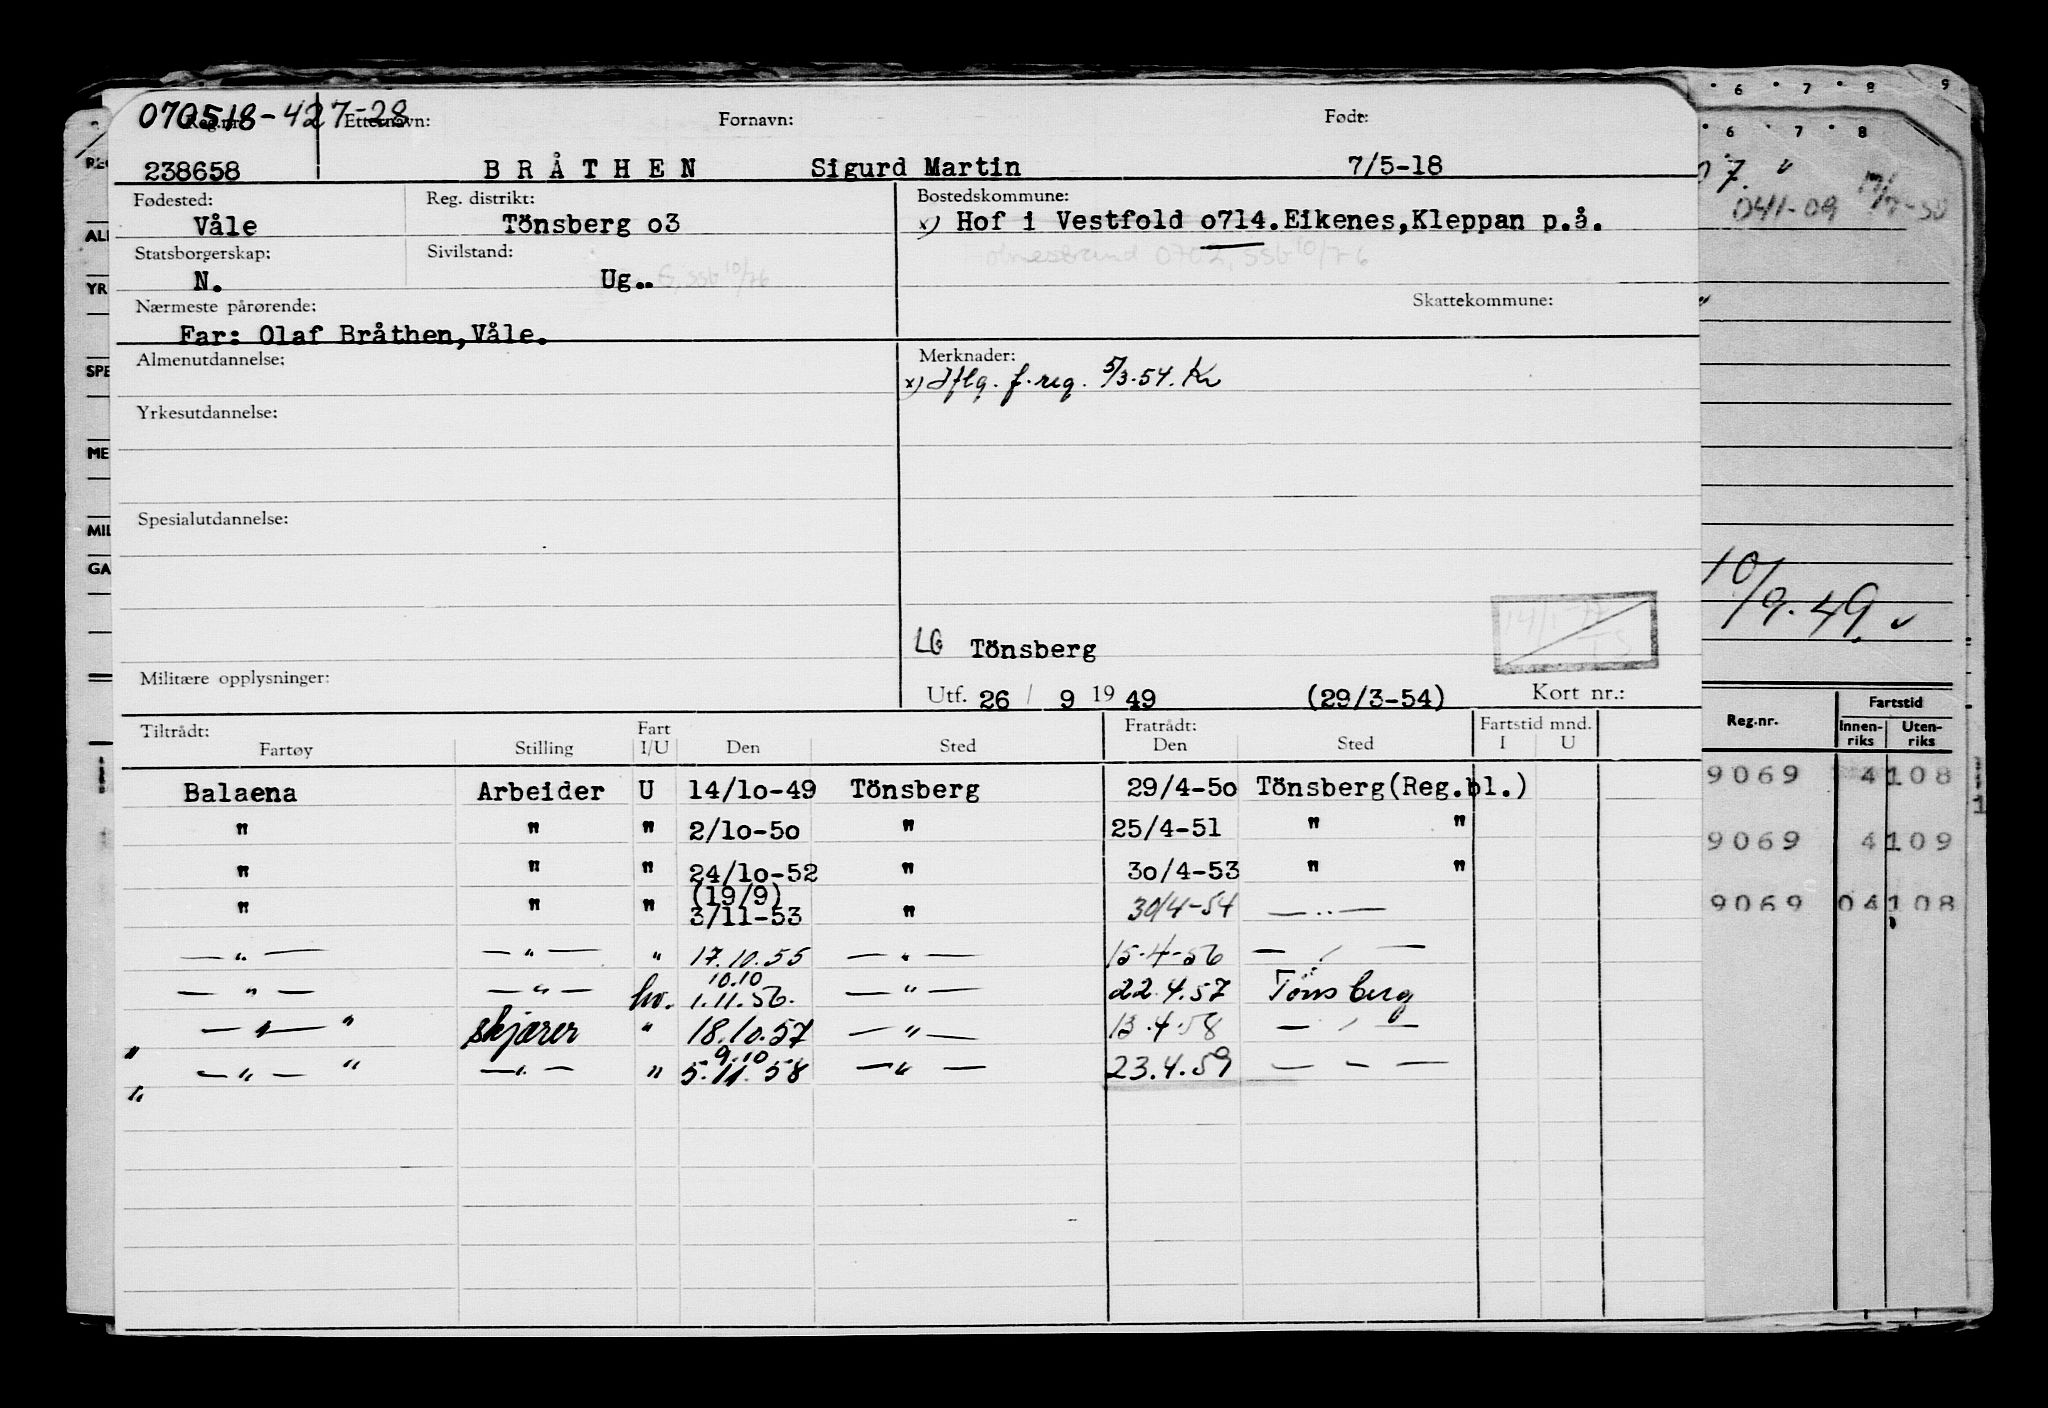 070518-42728
Reg.nr. Etternavn: Fornavn: Født:
238658 BRÅTHEN Sigurd Martin 7/5-18
Fødested: Reg. distrikt: Bostedskommune:
Våle Tönsberg o3 x) Hof i Vestfold o714.Eikenes,Kleppan p.å.
Statsborgerskap: Sivilstand: 0702, SSB 10/76
N. Ug.. G. SSB 10/76
Nærmeste pårørende: Skattekommune:
Far: Olaf Bråthen,Våle.
Almenutdannelse: Merknader:
x) Iflg. f. reg. 5/3.54. Kr
Yrkesutdannelse:
Spesialutdannelse:
LG Tönsberg
Militære opplysninger:
Utf. 26 / 9 19 49 (29/3-54) Kort nr.:
Tiltrådt: Fart Fratrådt: Fartstid mnd.
Fartøy Stilling I/U Den Sted Den Sted I U
Balaena Arbeider U 14/lo-49 Tönsberg 29/4-5o Tönsberg(Reg.bl.)
" " " 2/lo-5o " 25/4-51 " "
" " " 24/lo-52 " 3o/4-53 " "
(19/9)
" " " 3/11-53 " 30/4-54 — " —
— " — — " — " 17.10.55 — " — 15-4-56 — " —
10.10
— " — — " — hv. 1.11.56. — " — 22.4.57 Tönsberg
" — " — " skjærer " 18.10.57 — " — 13.4.58 — " —
9.10
" — " — " — " — " 5.11.58 — " — 23.4.59 — — —
6 7 8 9
6 7 8
07. "
041-09
10/9.49
Reg.nr. Fartstid
Innen-riks Uten-riks
9069 4 108
9069 4 109
9069 04 108
REG
ALM
YR
SPE
ME
MIL
GA